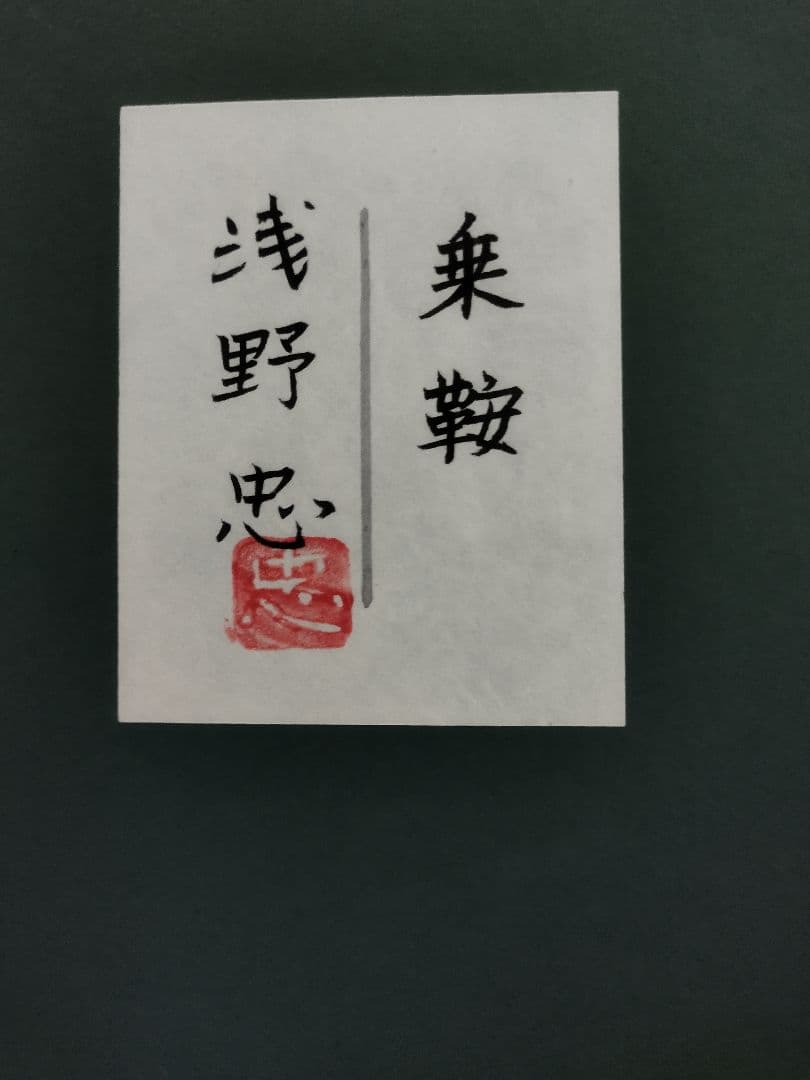 乗鞍
浅野忠
忠